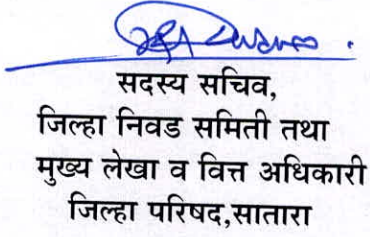 सदस्य सचिव,
जिल्हा निवड समिती तथा
मुख्य लेखा व वित्त अधिकारी
जिल्हा परिषद,सातारा